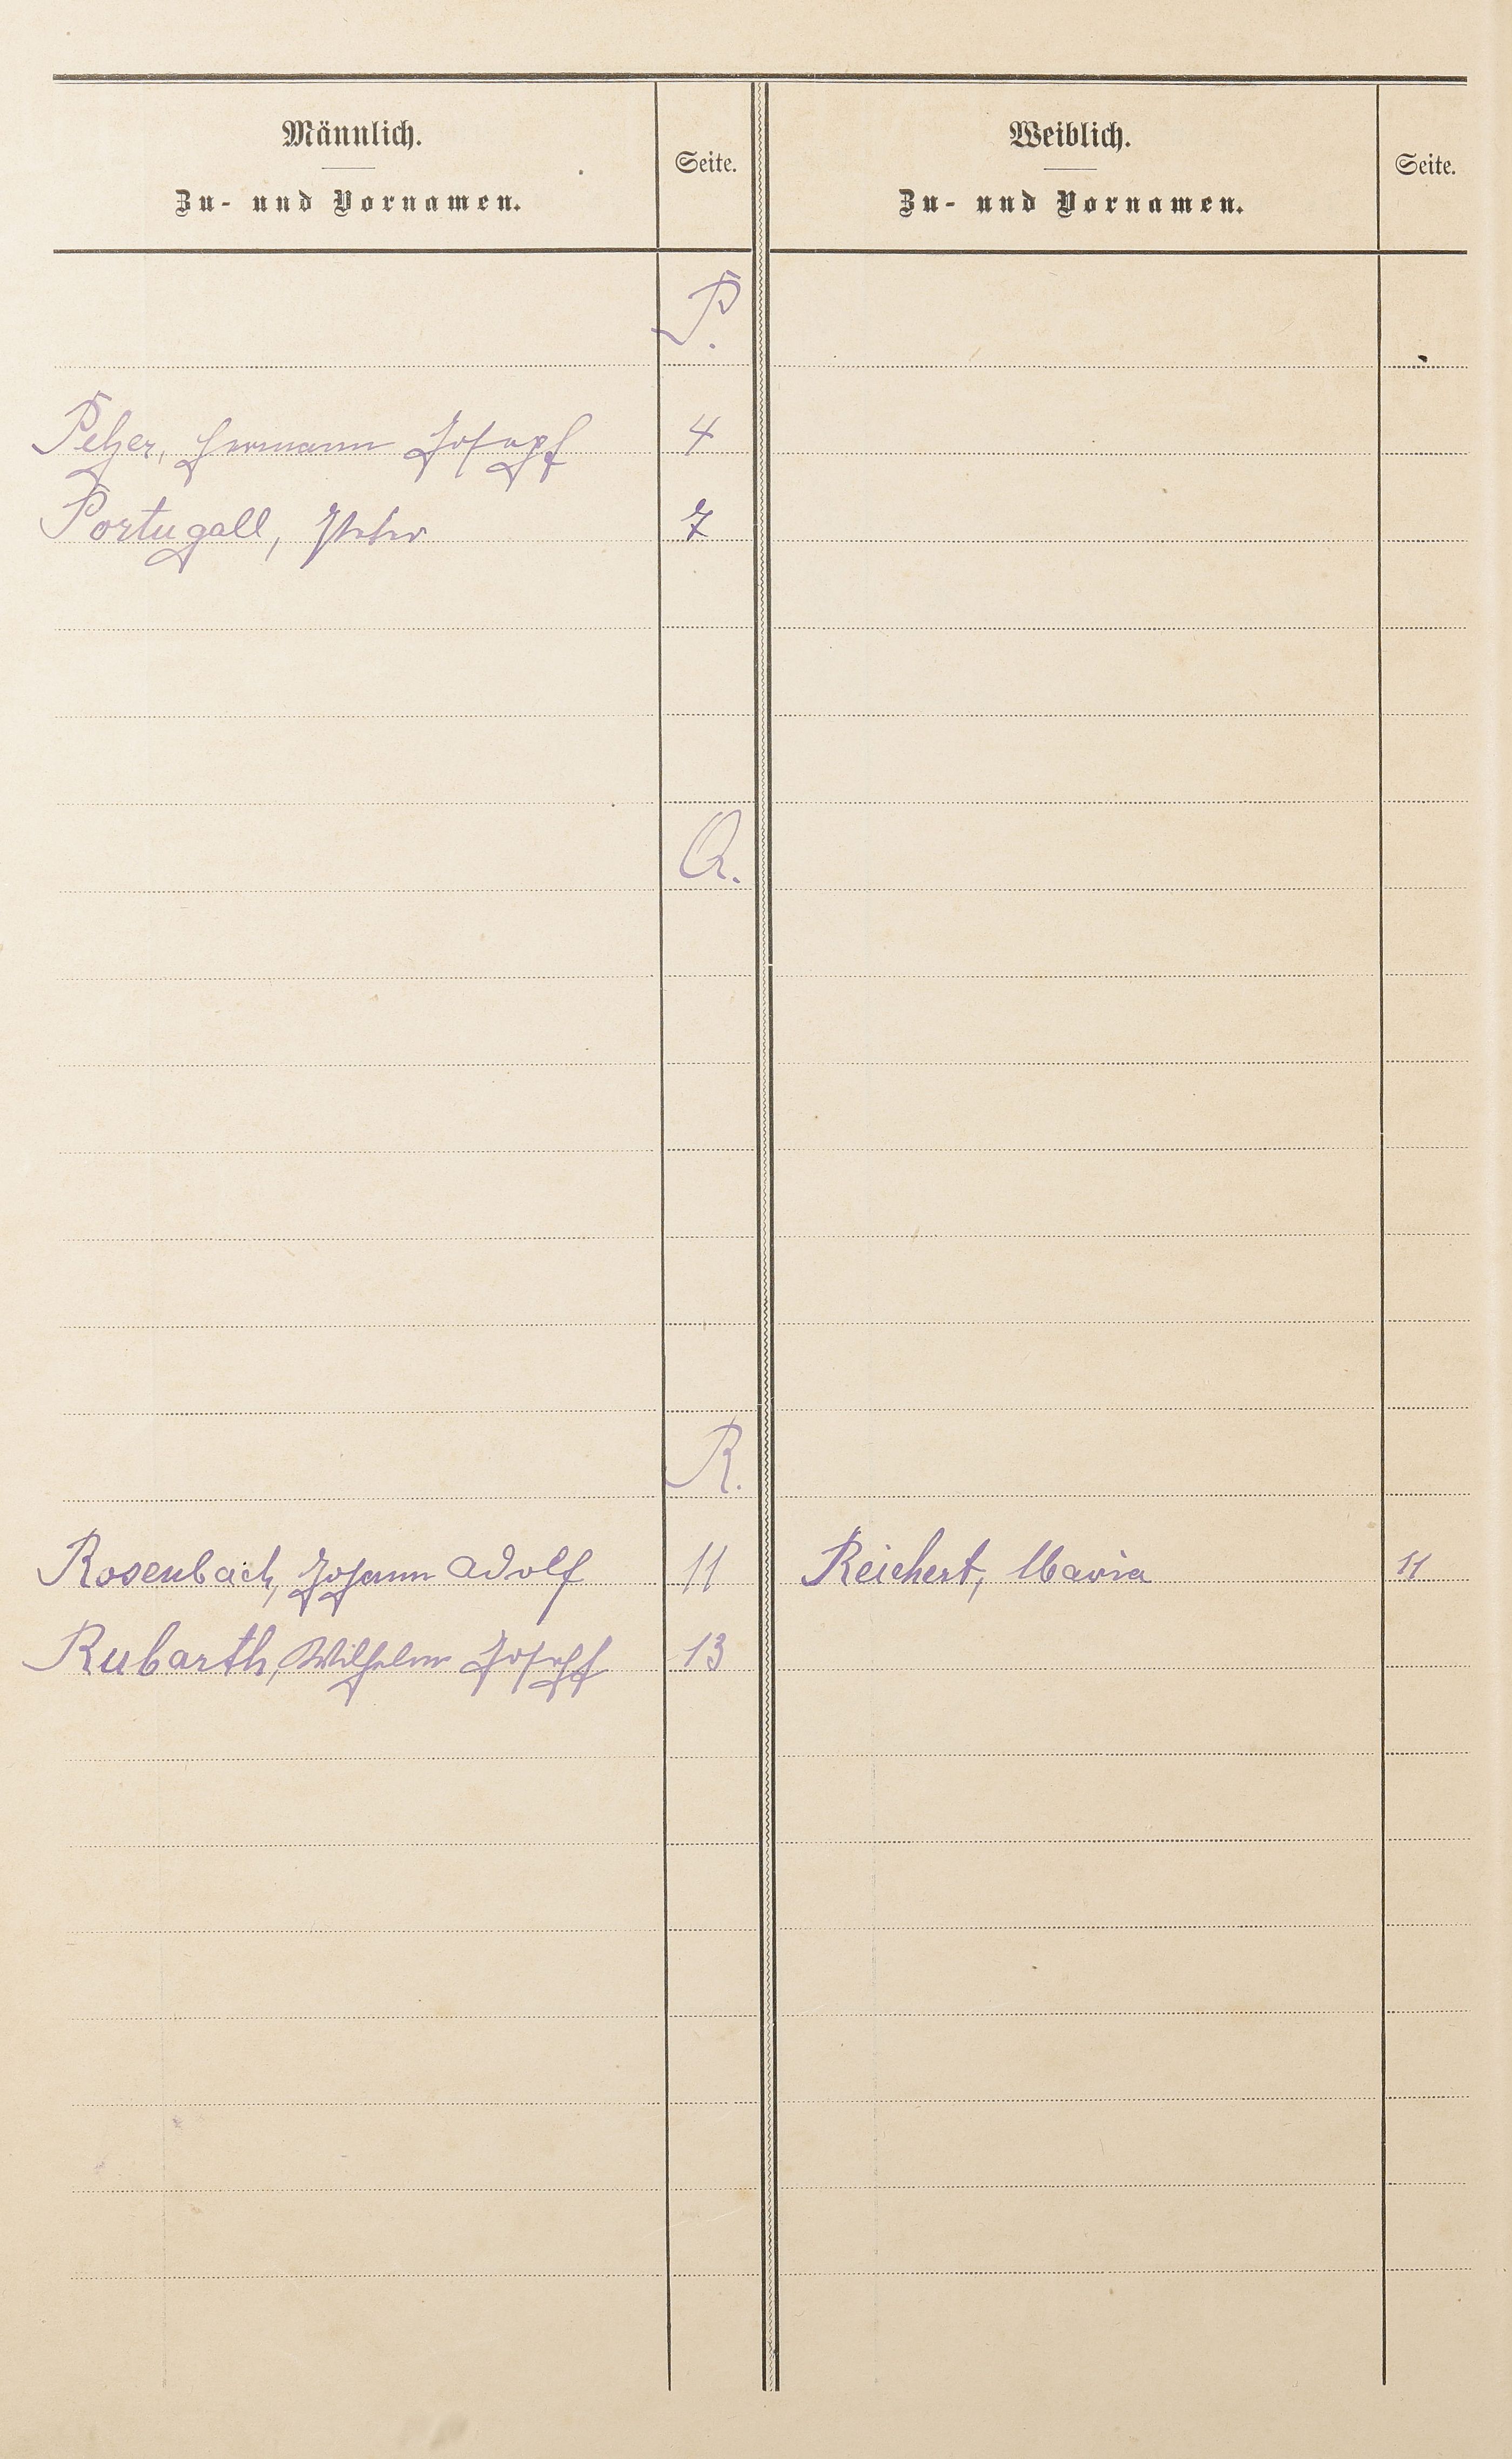 Männlich.
Zu- und Vornamen.
Seite.
Weiblich.
Zu- und Vornamen.
Seite.
P.
Pelzer, Hermann Joseph 4
Portugall, Peter 7
Q.
R.
Rosenbach, Johann Adolf 11 Reichert, Maria 11
Rubarth, Wilhelm Joseph 13